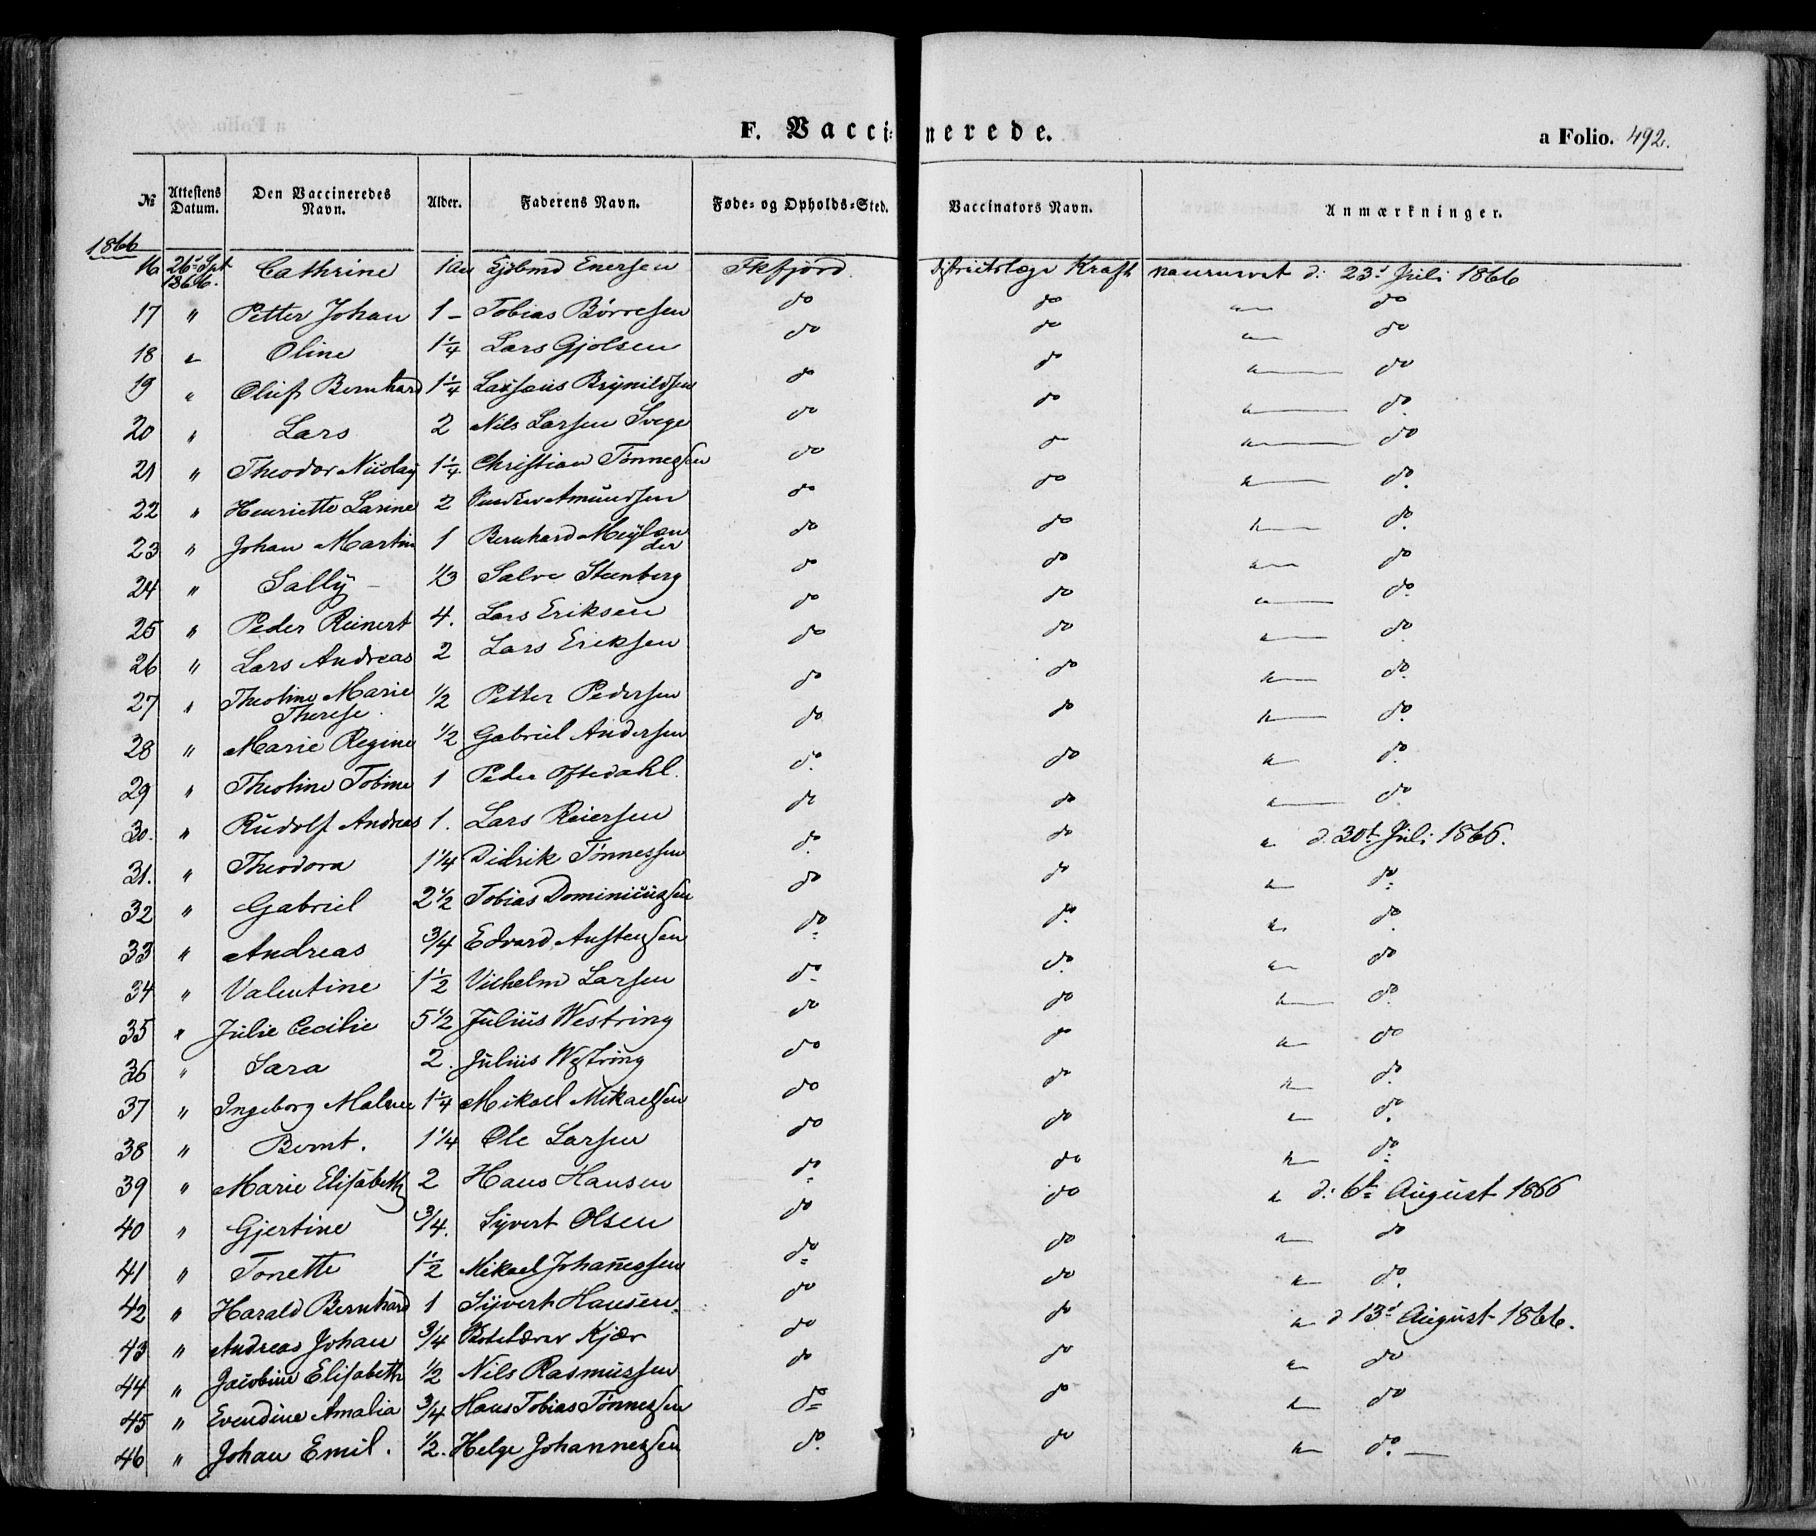 F. Vaccinerede.
a Folio. 492.
№ Attestens Datum. Den Vaccineredes Navn. Alder. Faderens Navn. Føde- og Opholds-Sted. Vaccinators Navn. Anmærkninger.
1866
16 26 Spt 1866. Cathrine 1 Enersen Fkfjord Kraft d: 23d Juli 1866
17 " Petter Johan 1 – Tobias Børresen do do " do
18 " Oline 1 1/4 Lars Gjolsen do do " do
19 " Oluf Bernhard 1 1/4 Brynildsen do do " do
20 " Lars 2 Nils Larsen Svege do do " do
21 " Theodor Nicolay 1 1/4 Christian Tønnessen do do " do
22 " Henriette Larine 2 Amundsen do do " do.
23 " Johan Martin 1 Bernhard Meylander do do " do.
24 " Sally – 1/3 Salve Steenberg do do " do
25 " Peder Reinert 4. Lars Eriksen do do " do.
26 " Lars Andreas 2 Lars Eriksen do do " do.
27 " Theoline Marie Therese. 1/2 Petter Pedersen do do " do.
28 " Marie Regine 1/2 Gabriel Andersen do do " do.
29 " Theoline Tobine 1 Peder Oftedahl. do. do " do.
30. " Rudolf Andreas 1. Lars Reiersen do do " do
31. " Theodora 1 1/4 Didrik Tønnessen do. do " d. 30t Juli 1866.
32 " Gabriel 2 1/2 Tobias Dominicussen do do " do
33 " Andreas 3/4 Edvard Austensen do do. " do.
34 " Valentine 1 1/2 Vilhelm Larsen do do. " do
35 " Julie Cecilie 5 1/2 Julius Westring do do " do.
36 " Sara 2. Julius Westring do do " do
37 " Ingeborg 1 1/4 Mikael Mikaelsen do do " do.
38 " Bernt. 1 1/4 Ole Larsen do do " do.
39 " Marie Elisabeth 2 Hans Hansen do do " do
40 " Gjertine 3/4. Syvert Olsen do do " d: 6t August 1866
41 " Tonette 1 1/2 Mikael Johannessen do do " do
42 " Harald Bernhard 1 Syvert Hansen. do do " do.
43 " Andreas Johan 3/4 Kjær do do " d 13d August 1866.
44 " Jacobine Elisabeth 1/2 Nils Rasmussen do do " do
45 " Evendine Amalia 3/4 Hans Tobias Tønnessen do do " do
46 " Johan Emil. 1/2. Helge Johannessen do. do " do.